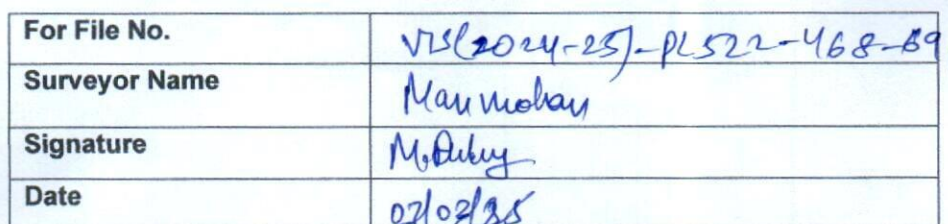 For File No. VIS(2024-25)-PL522-468-69
Surveyor Name Manmohan
Signature
Date